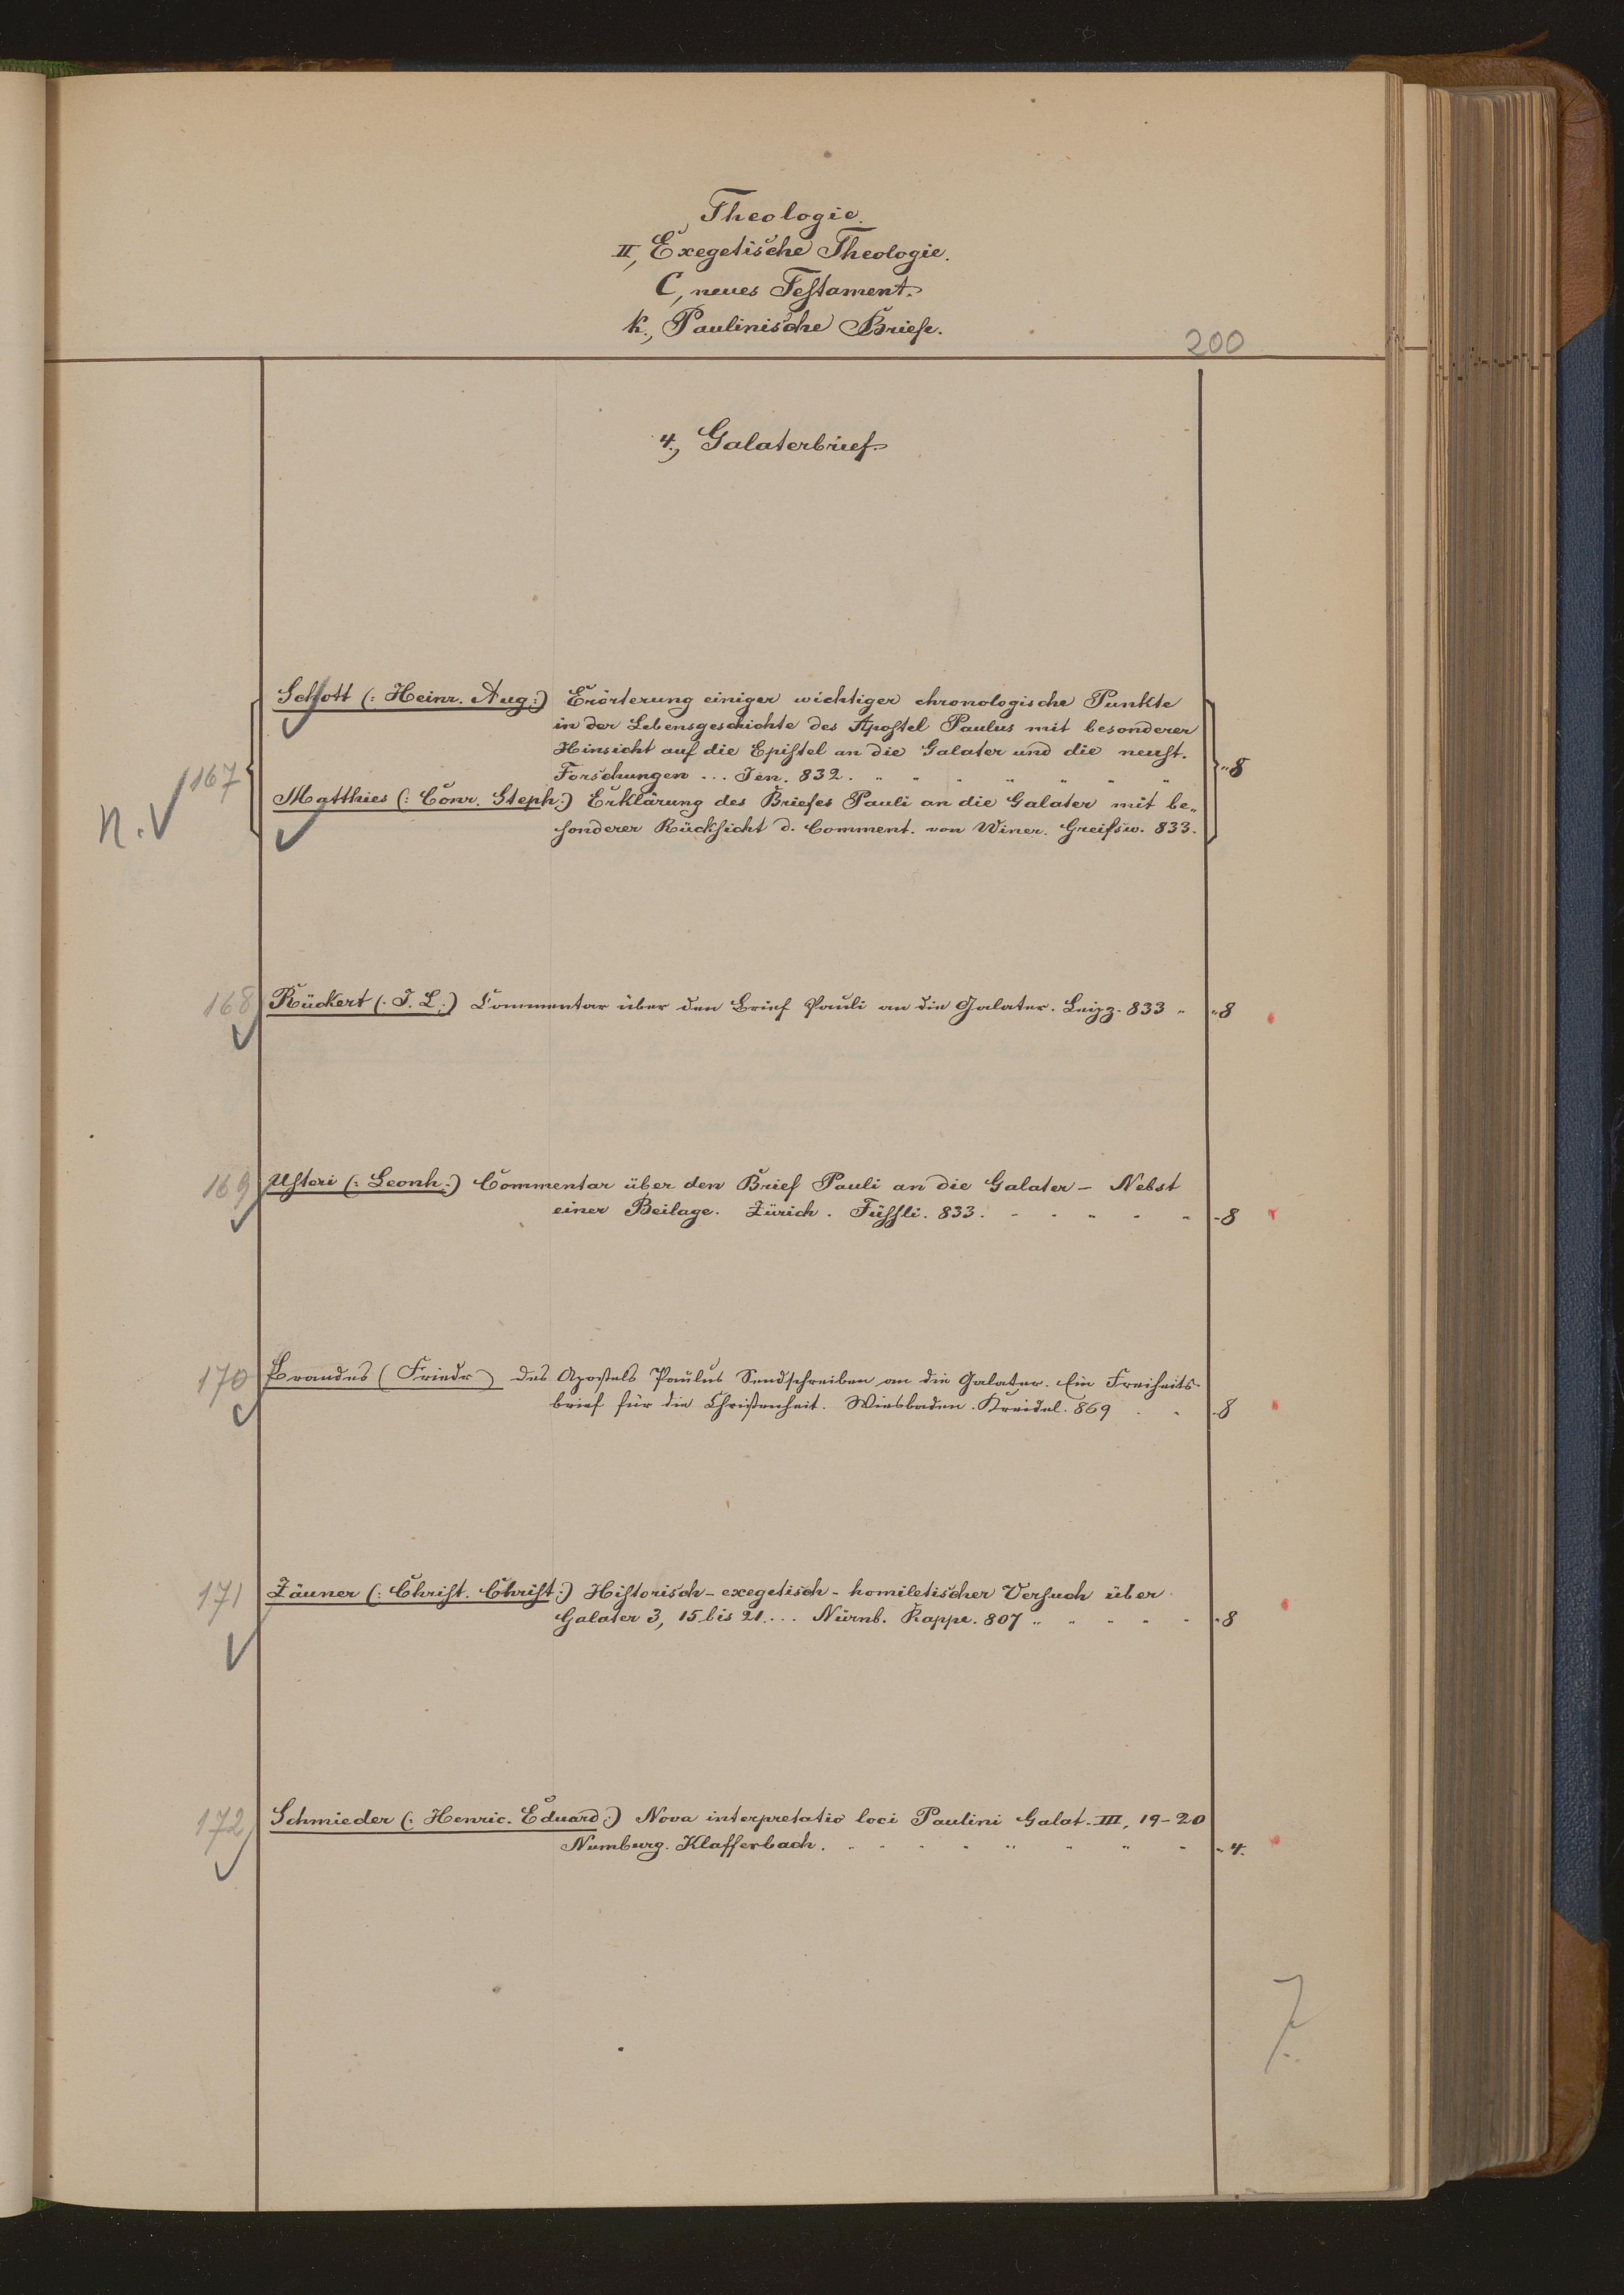 Theologie.
II, Exegetische Theologie.
C, neues Testament.
k., Paulinische Briefe.
200
4., Galaterbrief.
Schott (: Heinr. Aug:) Erörterung einiger wichtiger chronologische Punkte
in der Lebensgeschichte des Apostel Paulus mit besonderer
Hinsicht auf die Epistel an die Galater und die neust.
Forschungen ... Jen. 832. " " " " " " "
n. 167 " 8
Matthies (: Conr. Steph:) Erklärung des Briefes Pauli an die Galater mit be„
sonderer Rücksicht d. Comment. von Winer. Greifsw. 833.
168 Rückert (: J. L:) Commentar über den Brief Pauli an die Galater. Leipz. 833 " " 8
169 Usteri (: Leonh:) Commentar über den Brief Pauli an die Galater – Nebst
einer Beilage. Zürich. Füssli. 833. " " " " " " 8
170 Brandes (Friedr) des Apostels Paulus Sendschreiben an die Galater. Ein Freiheits-
brief für die Christenheit. Wiesbaden. Kreidel. 869 " " " 8
171 Zäuner (: Christ. Christ:) Historisch-exegetisch-homiletischer Versuch über
Galater 3, 15 bis 21.... Nürnb. Rappe. 807 " " " " " " 8
172 Schmieder (: Henric. Eduard:) Nova interpretatio loci Paulini Galat. III, 19–20
Numburg. Klafferbach. " " " " " " " " " 4.
7